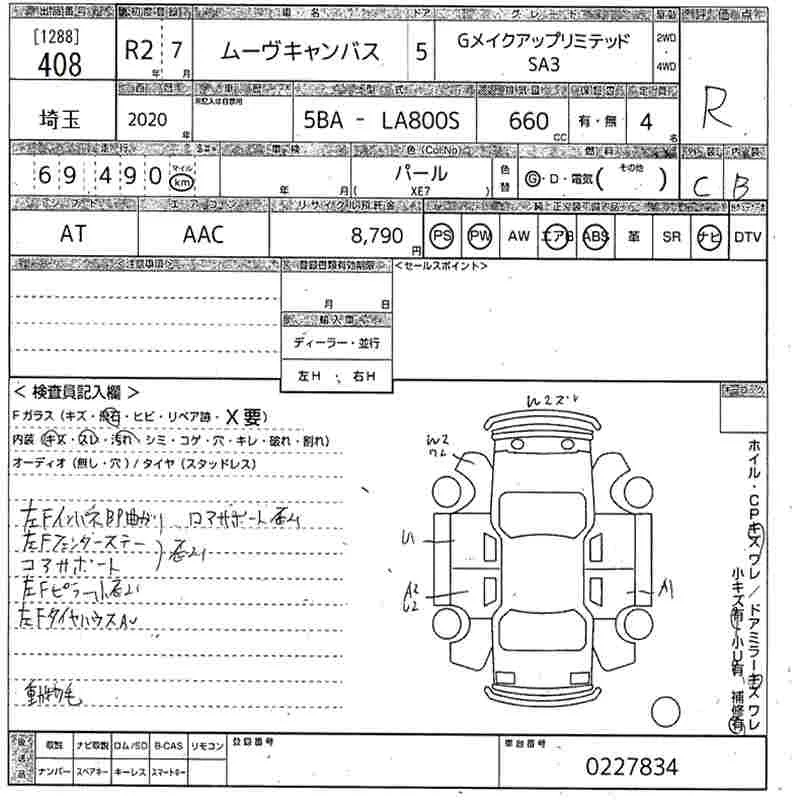 出品番号 初度登録 車名 ドア グレード 駆動 評価点
[1288]
408
R2 年 7 月
ムーヴキャンバス
5
Gメイクアップリミテッド
SA3
2WD
・
4WD
R
埼玉
車歴 型式 排気量 定員
2020 年
※記入は自家用
5BA - LA800S
660 CC
有・無
4 名
走行 車検 色(Col.No) 燃料 外装 内装
69,490 マイル km
年 月
パール
( XE7 )
色替
G・D・電気( その他 )
C
B
シフト エアコン リサイクル預託金 純正装備品
AT
AAC
8,790 円
PS PW AW エアB ABS 革 SR ナビ DTV
<注意事項>
登録書類有効期限
月 日
輸入車
ディーラー・並行
左H ・ 右H
<セールスポイント>
<検査員記入欄>
Fガラス(キズ・飛石・ヒビ・リペア跡・X要)
内装(キズ・スレ・汚れ・シミ・コゲ・穴・キレ・破れ・割れ)
オーディオ(無し・穴)/タイヤ(スタッドレス)
左FインパネBP曲がり コアサポート
左Fフェンダーステー
コアサポート
左Fピラー
左Fタイヤハウス
動物毛
W2
U1
A2
A1
ホイル・CPキズワレ/ドアミラーキズワレ
小キズ有 小U有 補修有
後送品
取説 ナビ取説 ロム/SD B-CAS リモコン
ナンバー スペアキー キーレス スマートキー
登録番号
車台番号
0227834